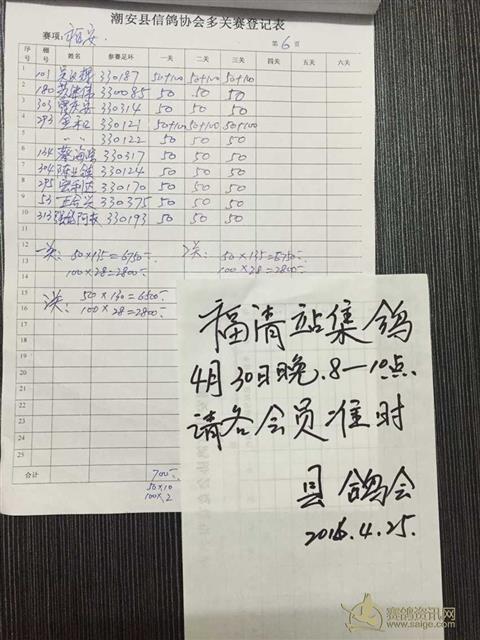 潮安县信鸽协会多关赛登记表
赛项: 福安. 第 6 页
序号 棚号 姓名 参赛足环 一关 二关 三关 四关 五关 六关
1 103 330187 50+100 50+100 50+100
2 180 330085 50 50 50
3 303 330314 50 50 50
4 293 330121 50+100 50+100 50+100
5 〃 〃 330122 50 50 50
6 134 蔡海 330317 50 50 50
7 304 330124 50 50 50
8 295 宏利达 330170 50 50 50
9 53 330375 50 50 50
10 313 330193 50 50 50
11
12 一关: 50×135=6750 2关: 50×135=6750
13 100×28=2800 100×28=2800
14
15 3关: 50×130=6500
16 100×28=2800
17
18
19
20
21
22
23
24
25
合计 700
50×10
100×2
福清站集鸽
4月30日晚.8—10点
请各会员准时
县鸽会
2016.4.25.
赛鸽资讯网
www.saige.com